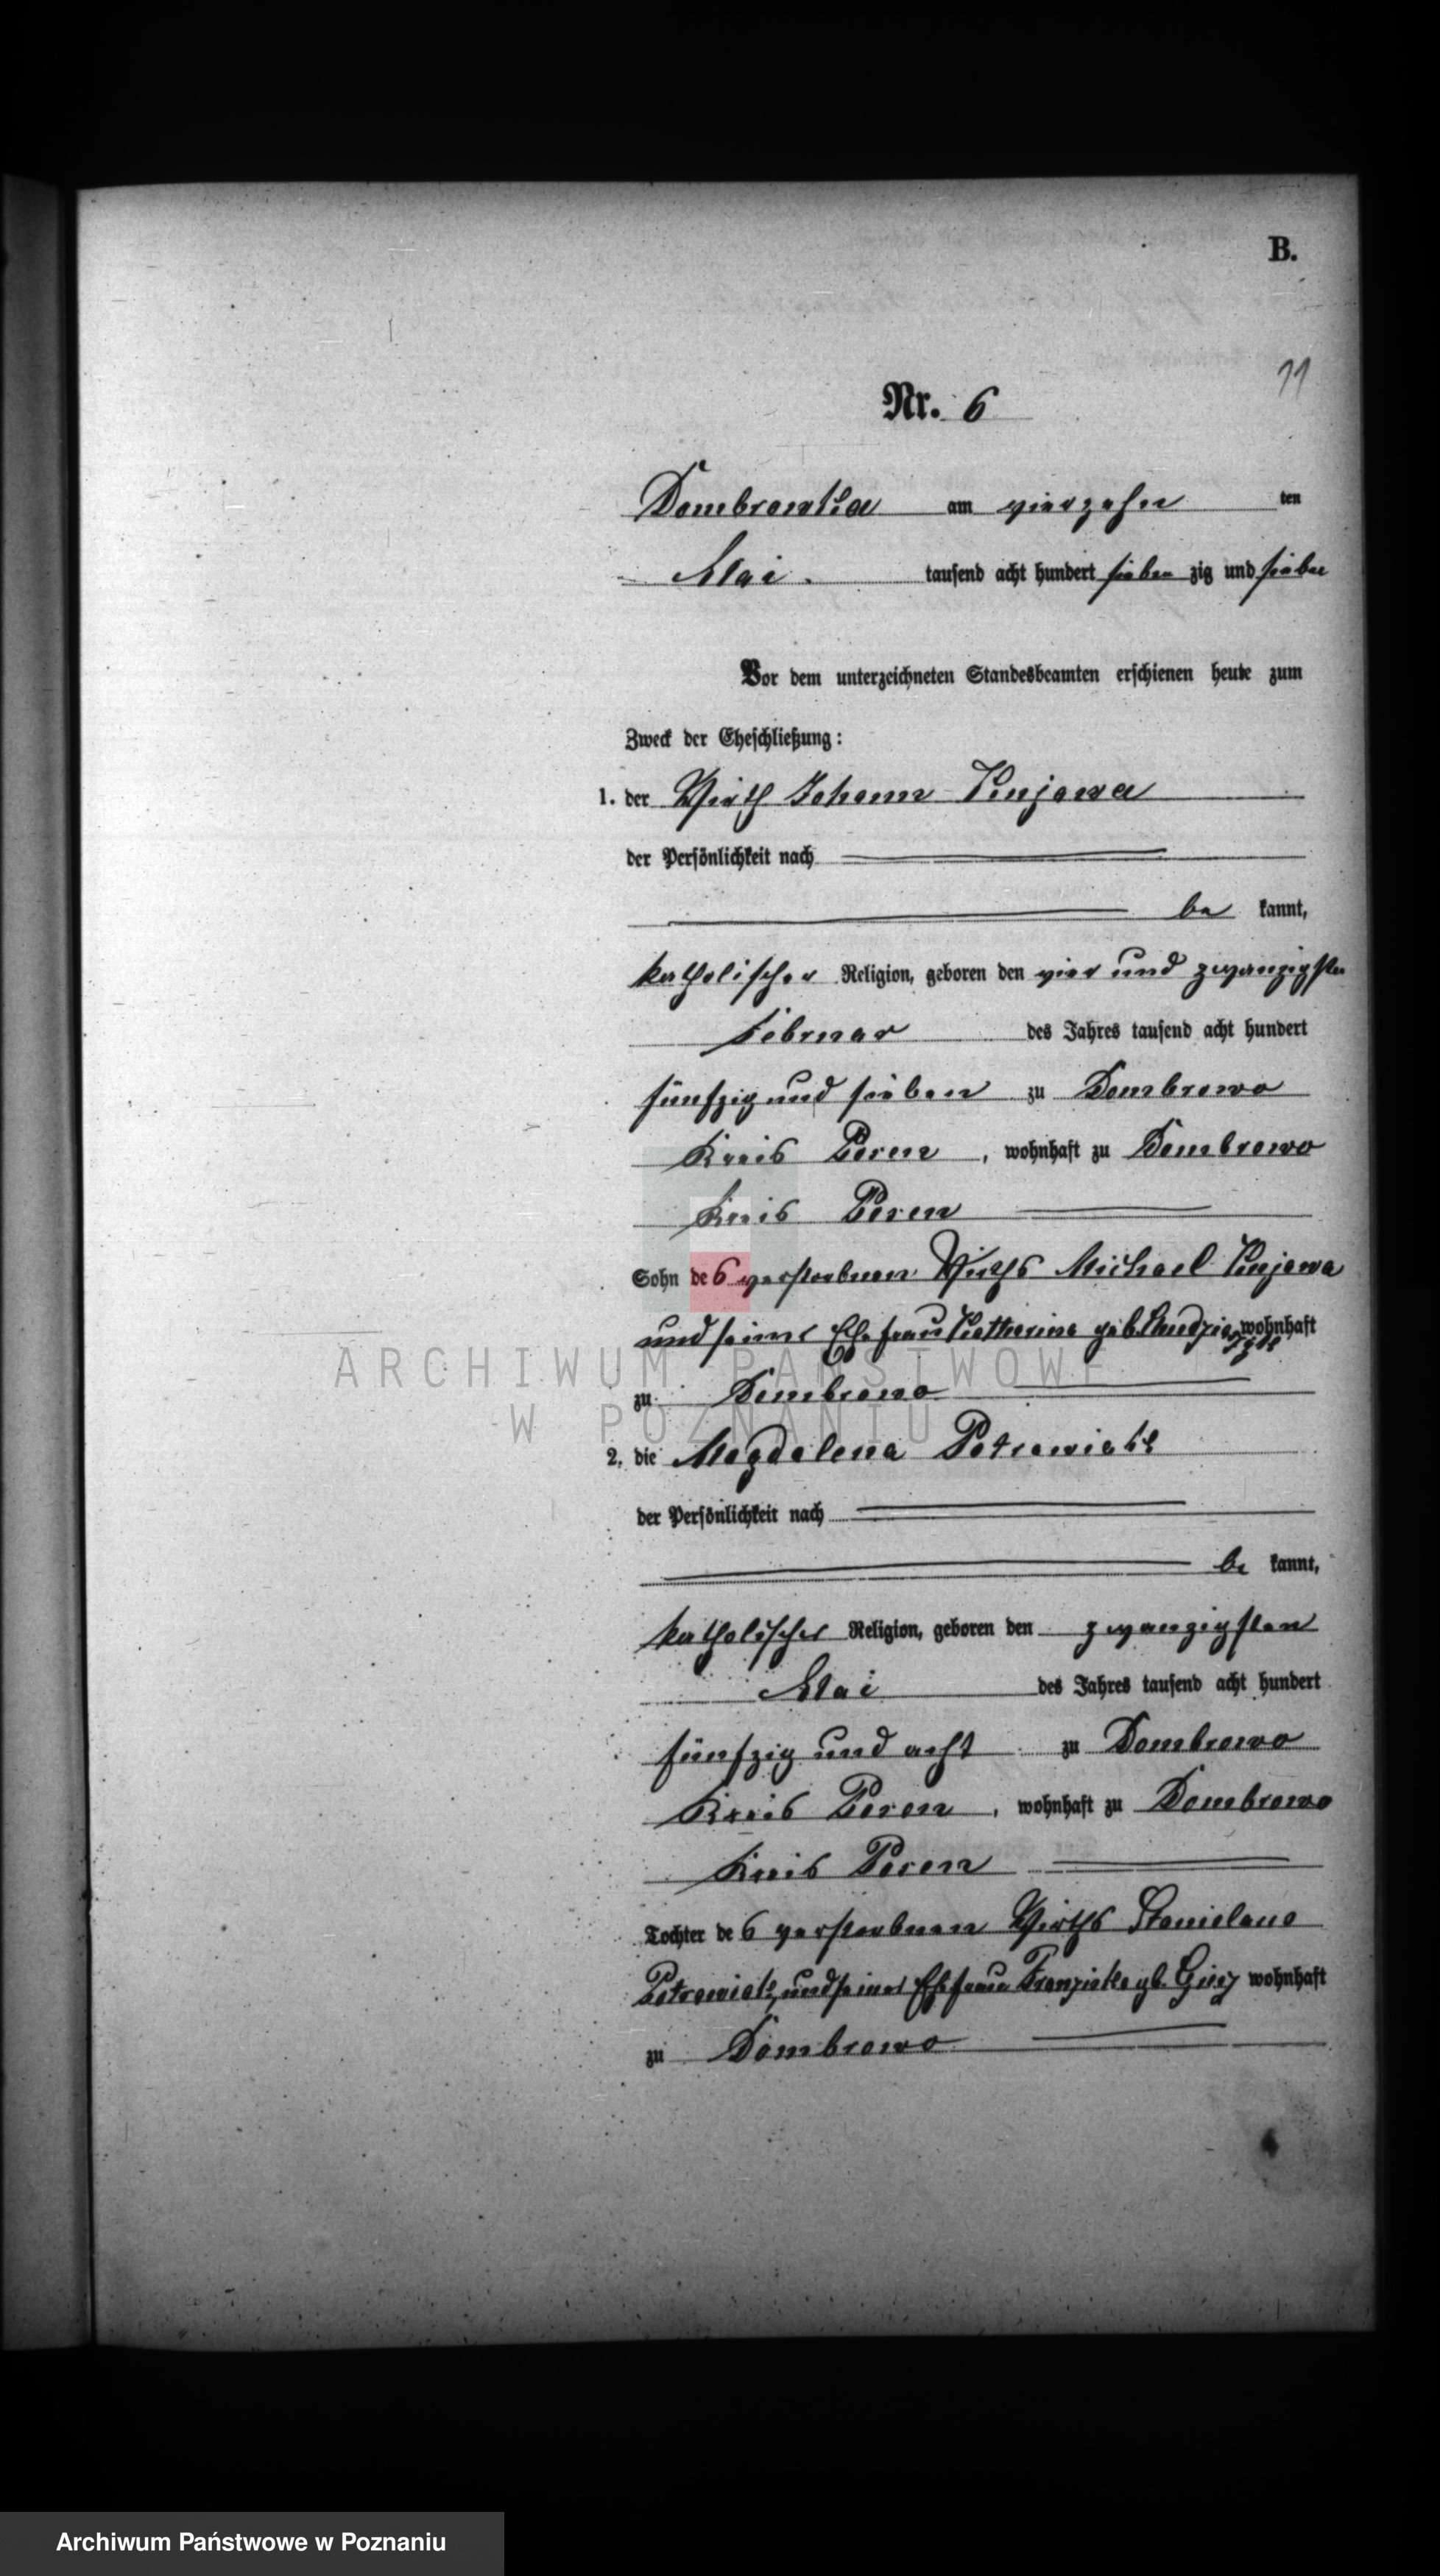 B.
11
Nr. 6
Dombrowka am vierzehn ten
Mai. tausend acht hundert sieben zig und sieben
Vor dem unterzeichneten Standesbeamten erschienen heute zum
Zweck der Eheschließung:
1. der Wirth Johann Kujawa
der Persönlichkeit nach
be kannt,
katholischer Religion, geboren den vier und zwanzigsten
Februar des Jahres tausend acht hundert
fünfzig und sieben zu Dombrowo
Kreis Posen, wohnhaft zu Dombrowo
Kreis Posen
Sohn des verstorbenen Wirths Michael Kujawa
und seiner Ehefrau Katharina geb. wohnhaft
zu Dombrowo
2. die Magdalena Petrowiak
der Persönlichkeit nach
be kannt,
katholischer Religion, geboren den zwanzigsten
Mai des Jahres tausend acht hundert
fünfzig und acht zu Dombrowo
Kreis Posen, wohnhaft zu Dombrowo
Kreis Posen
Tochter des verstorbenen Wirths Stanislaus
Petrowiak, und seiner Ehefrau Franziska gb. wohnhaft
zu Dombrowo
ARCHIWUM PAŃSTWOWE
W POZNANIU
Archiwum Państwowe w Poznaniu